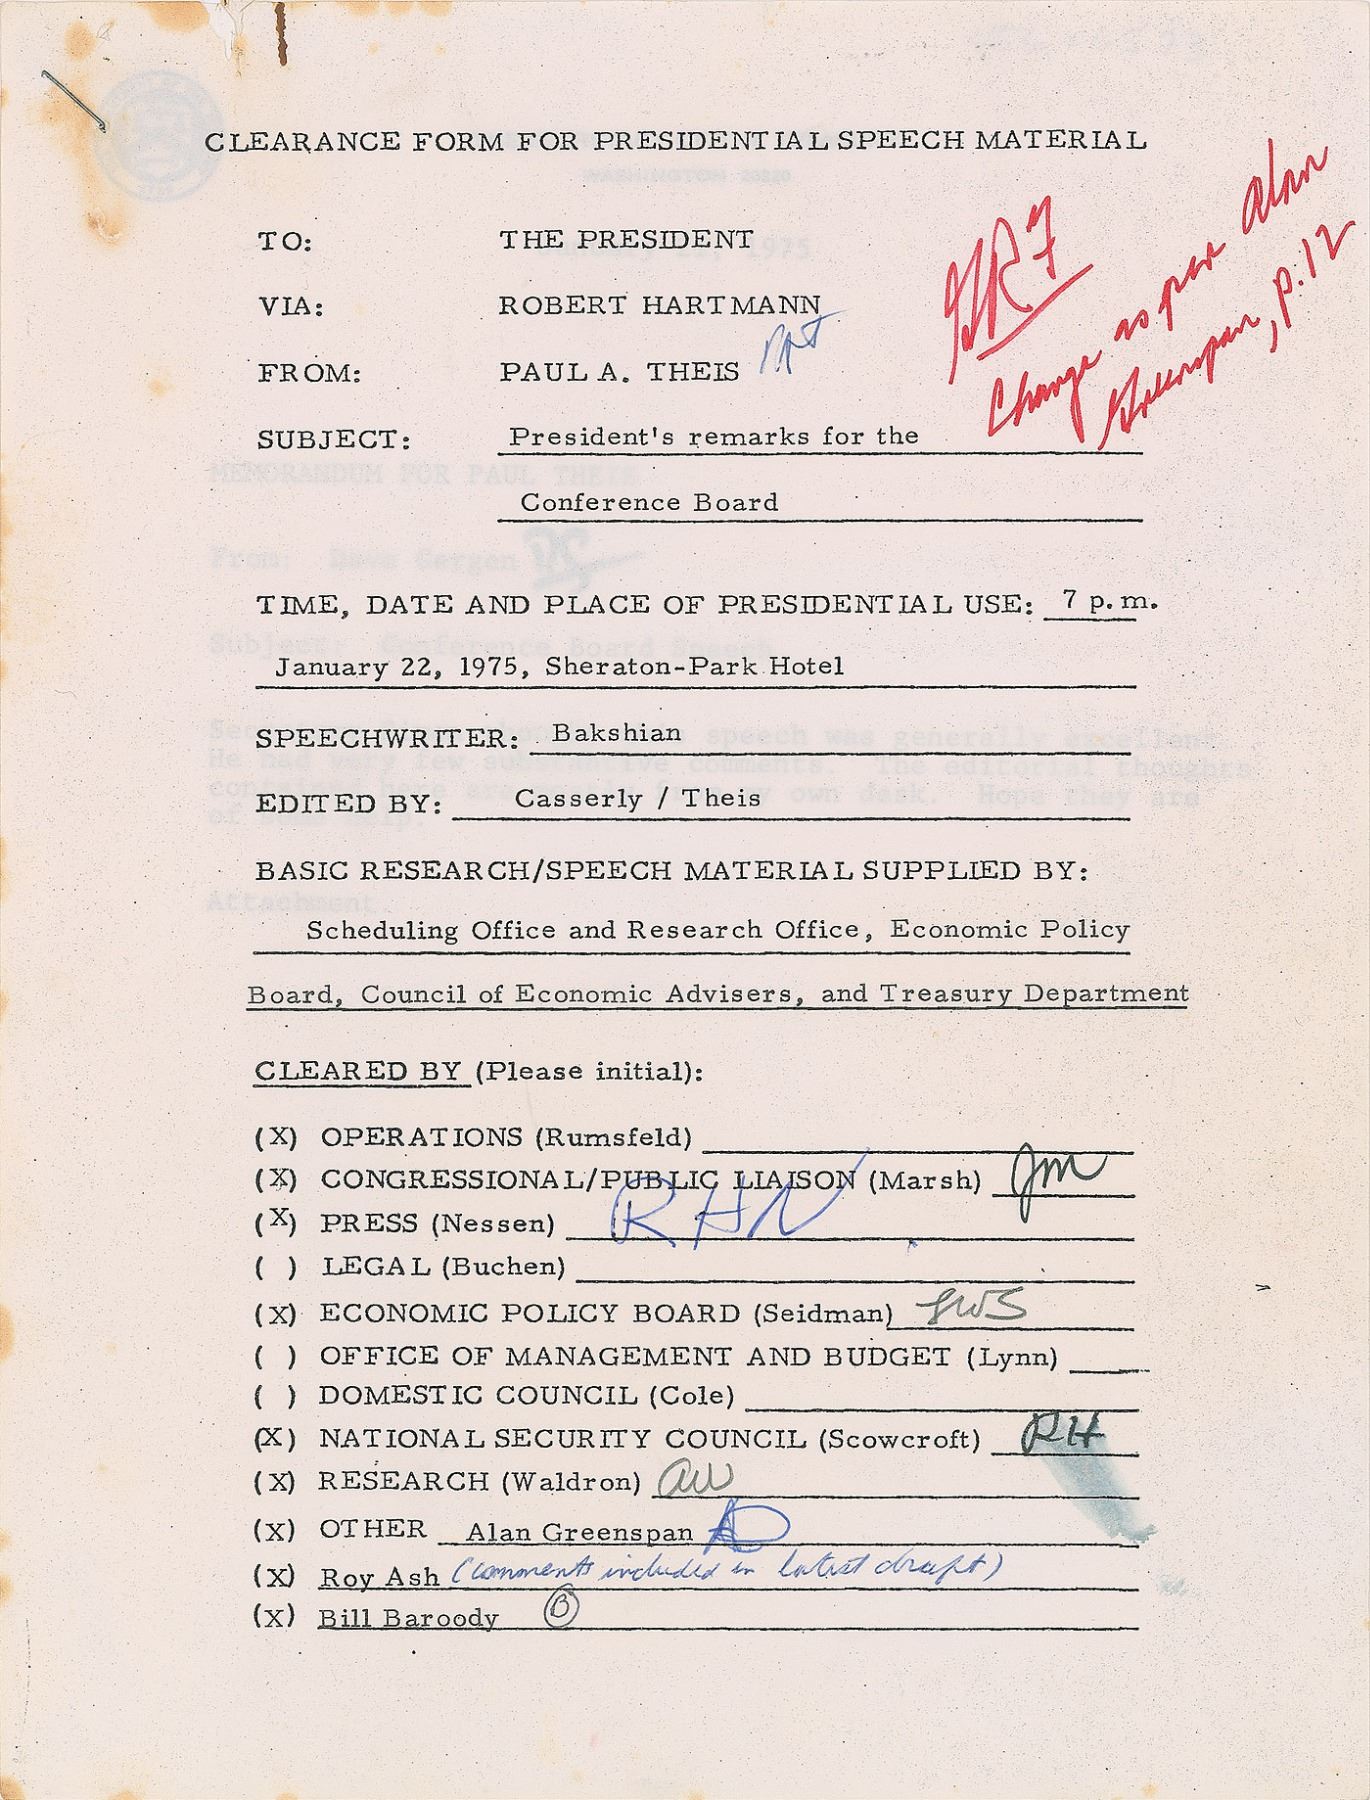 CLEARANCE FORM FOR PRESIDENTIAL SPEECH MATERIAL
TO: THE PRESIDENT
VIA: ROBERT HARTMANN
FROM: PAUL A. THEIS PAT
GRF
Change as per Alan
Greenspan, p. 12
SUBJECT: President's remarks for the
Conference Board
MEMORANDUM FOR PAUL THEIS
From: Dave Gergen
Subject: Conference Board Speech
TIME, DATE AND PLACE OF PRESIDENTIAL USE: 7 p.m.
January 22, 1975, Sheraton-Park Hotel
SPEECHWRITER: Bakshian
EDITED BY: Casserly / Theis
BASIC RESEARCH/SPEECH MATERIAL SUPPLIED BY:
Attachment
Scheduling Office and Research Office, Economic Policy
Board, Council of Economic Advisers, and Treasury Department
CLEARED BY (Please initial):
(X) OPERATIONS (Rumsfeld)
(X) CONGRESSIONAL/PUBLIC LIAISON (Marsh) JM
(X) PRESS (Nessen) RHN
( ) LEGAL (Buchen)
(X) ECONOMIC POLICY BOARD (Seidman) LWS
( ) OFFICE OF MANAGEMENT AND BUDGET (Lynn)
( ) DOMESTIC COUNCIL (Cole)
(X) NATIONAL SECURITY COUNCIL (Scowcroft) RH
(X) RESEARCH (Waldron) aw
(X) OTHER Alan Greenspan
(X) Roy Ash (comments included in latest draft)
(X) Bill Baroody B